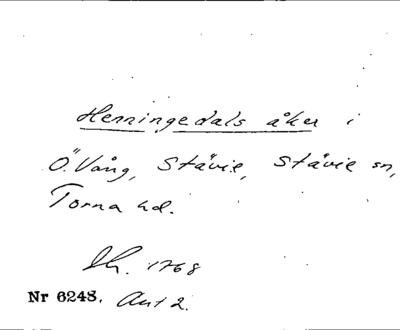 Henningedals åker i
Ö. Vång, Stävie, Stävie sn,
Torna hd.
1768
Nr 6248. Akt 2.